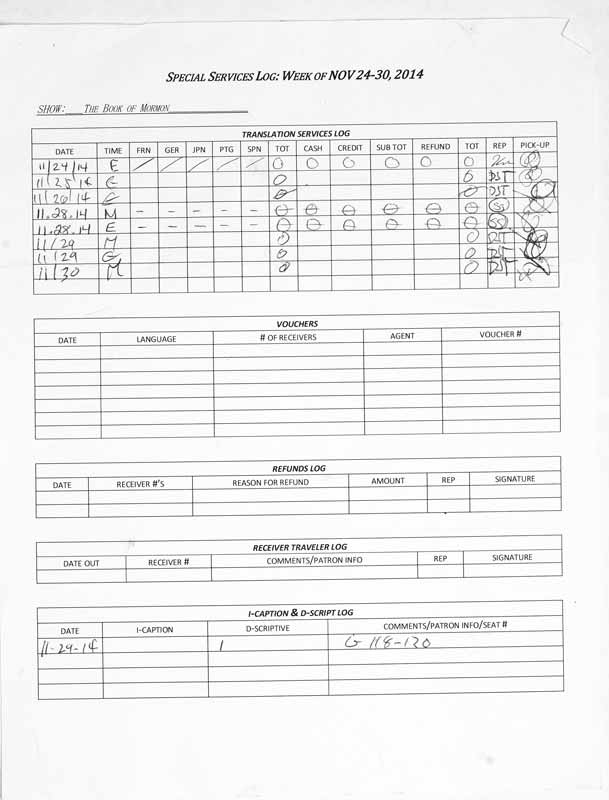 SPECIAL SERVICES LOG: WEEK OF NOV 24-30, 2014
SHOW: THE BOOK OF MORMON
TRANSLATION SERVICES LOG
DATE TIME FRN GER JPN PTG SPN TOT CASH CREDIT SUB TOT REFUND TOT REP PICK-UP
11/24/14 E / / / / / 0 0 0 0 0 0
11/25/14 E 0 0 DST
11/26/14 E 0 0 DST
11.28.14 M - - - - - 0 0 0 0 0 0 SS
11.28.14 E - - - - - 0 0 0 0 0 0 SS
11/29 M 0 0 DST
11/29 0 0 DST
11/30 M 0 0 DST
VOUCHERS
DATE LANGUAGE # OF RECEIVERS AGENT VOUCHER #
REFUNDS LOG
DATE RECEIVER #'S REASON FOR REFUND AMOUNT REP SIGNATURE
RECEIVER TRAVELER LOG
DATE OUT RECEIVER # COMMENTS/PATRON INFO REP SIGNATURE
I-CAPTION & D-SCRIPT LOG
DATE I-CAPTION D-SCRIPTIVE COMMENTS/PATRON INFO/SEAT #
11-29-14 1 G 118-120